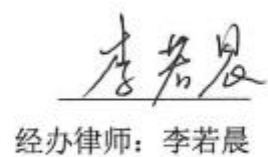 李若晨
经办律师：李若晨